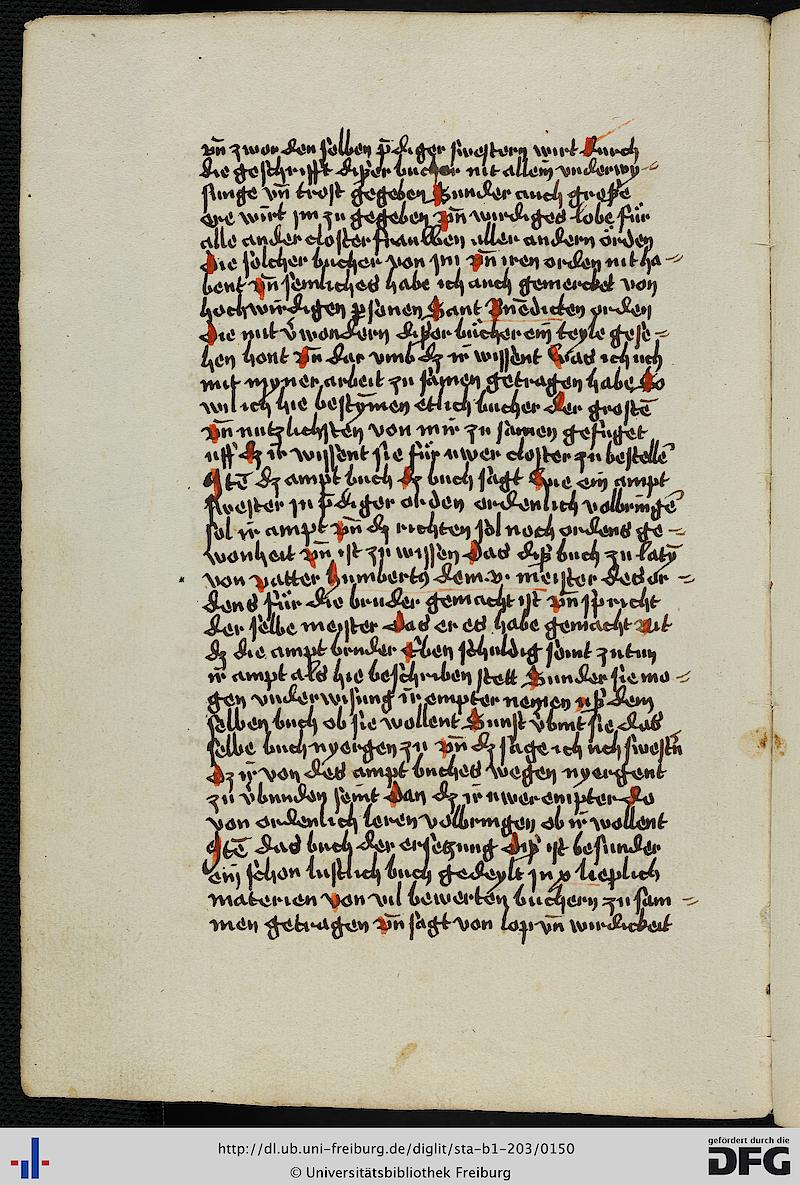 vn̄ zwor den selben p̄diger swestern wirt Durch
die geschrifft disßer bucher nit allein vnderwy-
sunge vn̄ trost gegeben Sunder auch große
ere wirt jm zu gegeben vn̄ wirdiges lobe für
alle ander closter frauwen aller andern orden
Die solcher bucher von jm vn̄ iren orden nit ha-
bent vn̄ semliches habe ich auch gemercket von
hochwirdigen psonen Sant Bn̄edicten orden
Die mit v̄wondern disßer bücher ein teyle gese-
hen hont vn̄ dar vmb dz ir wissent Was ich uch
mit myner arbeit zu samen getragen habe So
wil ich hie bestȳmen etlich bucher der grostē
vn̄ nutzlichsten von mir zu samen gefuget
uff dz ir wissent sie für uwer closter zu bestellē
Itē dz ampt buch dz buch sagt Wie ein ampt
swester jn p̄diger orden ordenlich volbringē
sol ir ampt vn̄ dz richten sol noch ordens ge-
wonheit vn̄ ist zu wissen Das disß buch zu latȳ
von vatter humberto dem .v. meister des or-
dens für die bruder gemacht ist vn̄ spricht
der selbe meister Das er es habe gemacht Nit
dz die ampt bruder Eben schuldig seint zu tun
ir ampt als hie beschriben stett Sunder sie mo-
gen vnderwisung ir empter nemen usß dem
selben buch ob sie wollent Sunst v̄bint sie das
selbe buch nyergen zu vn̄ dz sage ich uch swestn̄
Dz ir von des ampt buches wegen nyergent
zu v̄bunden seint Dan dz ir uwer empter do
von ordenlich leren volbringen ob ir wollent
Itē das buch der ersetzung Disß ist besunder
ein schon lustlich buch gedeylt jn x lieplich
materien von vil bewerten buchern zu sam-
men getragen vn̄ sagt von lop vn̄ wirdickeit
http://dl.ub.uni-freiburg.de/diglit/sta-b1-203/0150
© Universitätsbibliothek Freiburg
gefördert durch die
DFG